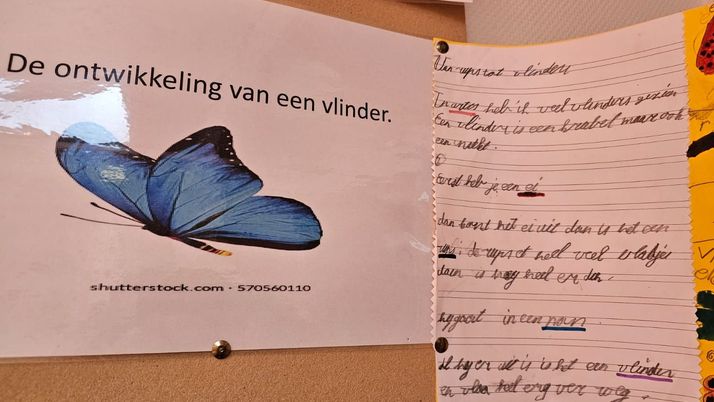 De ontwikkeling van een vlinder.
shutterstock.com · 570560110
Van rups tot vlinders
In artis heb ik veel vlinders gezien
Een vlinder is een kreabel maar ook
een insekt.
Eerst heb je een ei
dan komt het ei uit dan is het een
rups; de rups et heel veel blatjes
dan is hey heel erg dik.
hy gaat in een pop
als hy er uit is is het een vlinder
en vlou hel erg ver weg.